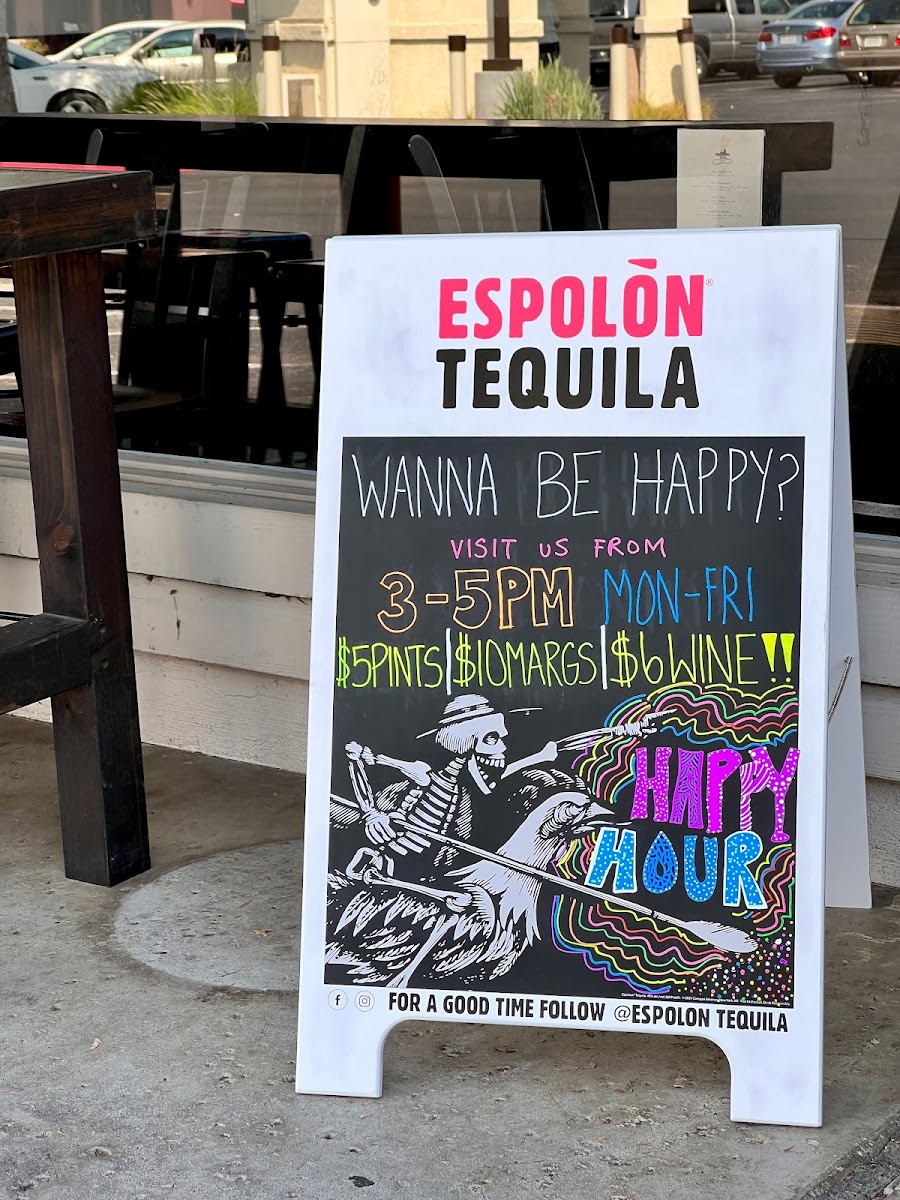 ESPOLÒN®
TEQUILA
WANNA BE HAPPY?
VISIT US FROM
3-5PM MON-FRI
$5PINTS|$10MARGS|$6WINE!!
HAPPY
HOUR
FOR A GOOD TIME FOLLOW @ESPOLON TEQUILA